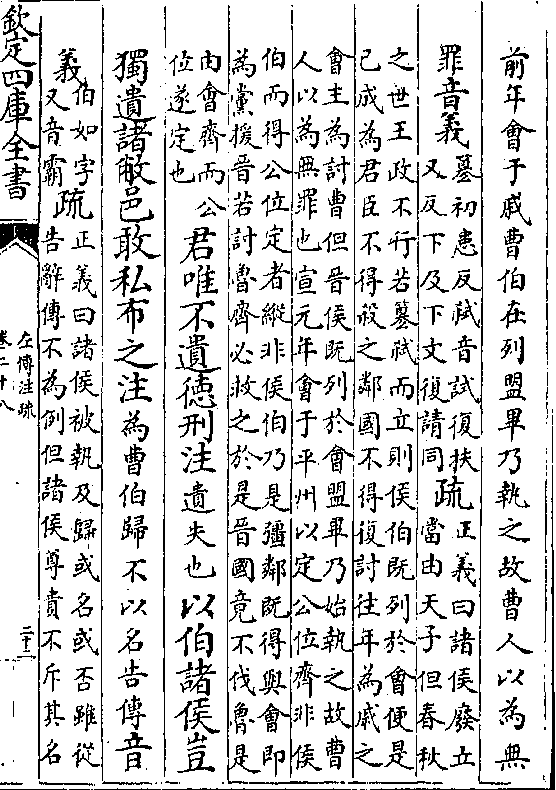 前年會于戚曹伯在列盟畢乃執之故曹人以為無
罪音義篡初患反弑音試復扶
又反下及下文復請同疏正義曰諸侯廢立
當由天子但春秋
之世王政不行若篡弑而立則侯伯既列於會便是
已成為君臣不得殺之鄰國不得復討往年為戚之
會主為討曹但晉侯既列於會盟畢乃始執之故曹
人以為無罪也宣元年會于平州以定公位齊非侯
伯而得公位定者縱非侯伯乃是彊鄰既得與會即
為黨援晉若討魯齊必救之於是晉國竟不伐魯是
由會齊而公
位遂定也君唯不遺德刑注遺失也以伯諸侯豈
獨遺諸敝邑敢私布之注為曹伯歸不以名告傳音
義伯如字
又音霸疏正義曰諸侯被執及歸或名或否雖從
告辭傳不為例但諸侯尊貴不斥其名
欽定四庫全書
左傳注疏
卷二十八